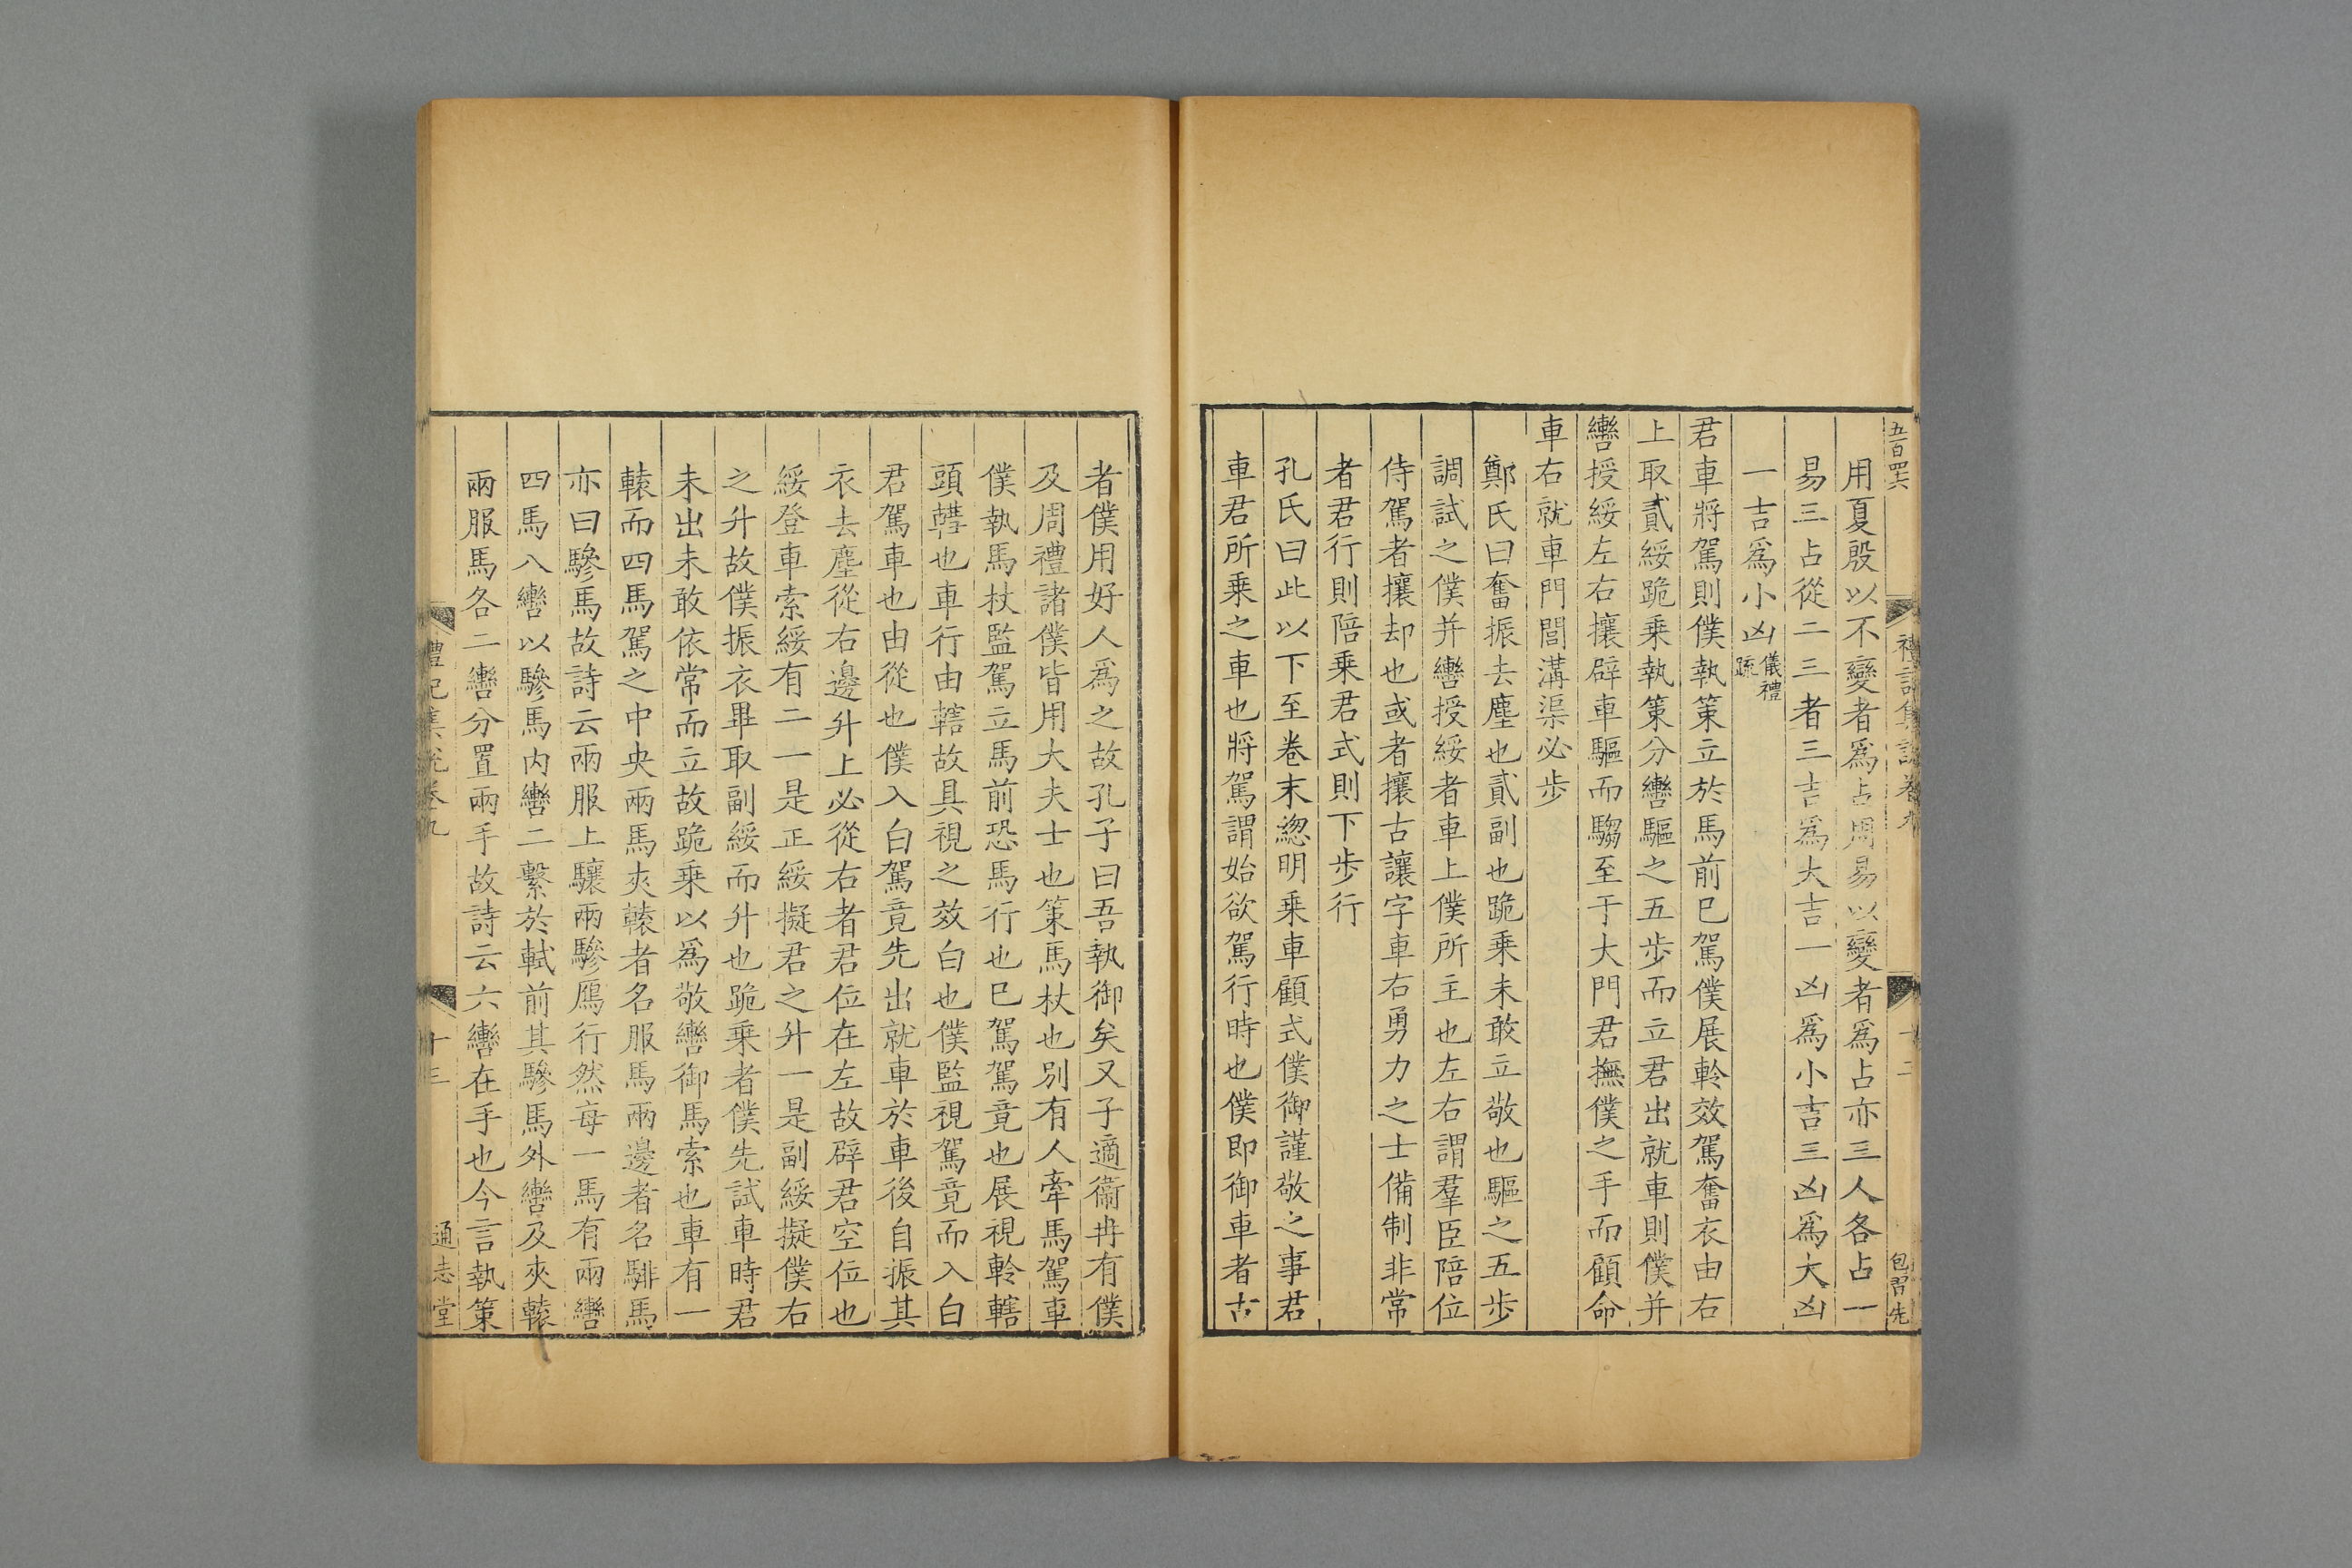 五百四六
禮記集說卷九
十二
包習先
用夏殷以不變者爲占周易以變者爲占亦三人各占一
易三占從二三者三吉爲大吉一凶爲小吉三凶爲大凶
一吉爲小凶儀禮疏
君車將駕則僕執策立於馬前已駕僕展軨效駕奮衣由右
上取貳綏跪乗執策分轡驅之五步而立君出就車則僕并
轡授綏左右攘辟車驅而騶至于大門君撫僕之手而顧命
車右就車門閭溝渠必步
鄭氏曰奮振去塵也貳副也跪乗未敢立敬也驅之五步
調試之僕并轡授綏者車上僕所主也左右謂羣臣陪位
侍駕者攘却也或者攘古讓字車右勇力之士備制非常
者君行則陪乗君式則下步行
孔氏曰此以下至卷末緫明乗車顧式僕御謹敬之事君
車君所乗之車也將駕謂始欲駕行時也僕即御車者古
者僕用好人爲之故孔子曰吾執御矣又子適衞冉有僕
及周禮諸僕皆用大夫士也策馬杖也別有人牽馬駕車
僕執馬杖監駕立馬前恐馬行也已駕駕竟也展視軨轄
頭轊也車行由轄故具視之效白也僕監視駕竟而入白
君駕車也由從也僕入白駕竟先出就車於車後自振其
衣去塵從右邊升上必從右者君位在左故辟君空位也
綏登車索綏有二一是正綏擬君之升一是副綏擬僕右
之升故僕振衣畢取副綏而升也跪乗者僕先試車時君
未出未敢依常而立故跪乗以爲敬轡御馬索也車有一
轅而四馬駕之中央兩馬夾轅者名服馬兩邊者名騑馬
亦曰驂馬故詩云兩服上驤兩驂鴈行然每一馬有兩轡
四馬八轡以驂馬内轡二繫於軾前其驂馬外轡及夾轅
兩服馬各二轡分置兩手故詩云六轡在手也今言執策
禮記集說卷九
十三
通志堂